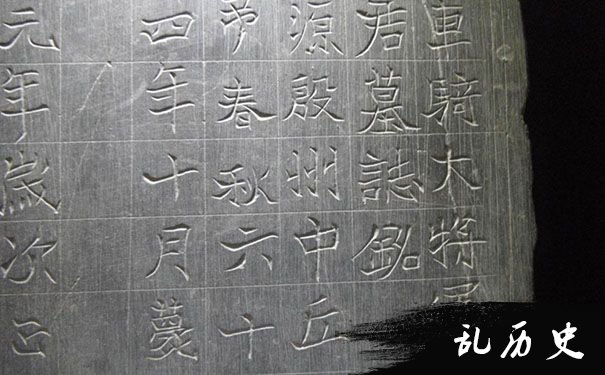 車騎大將
君墓誌銘
源殷州中丘
春秋六十
四年十月薨
元年歲次己
乱历史